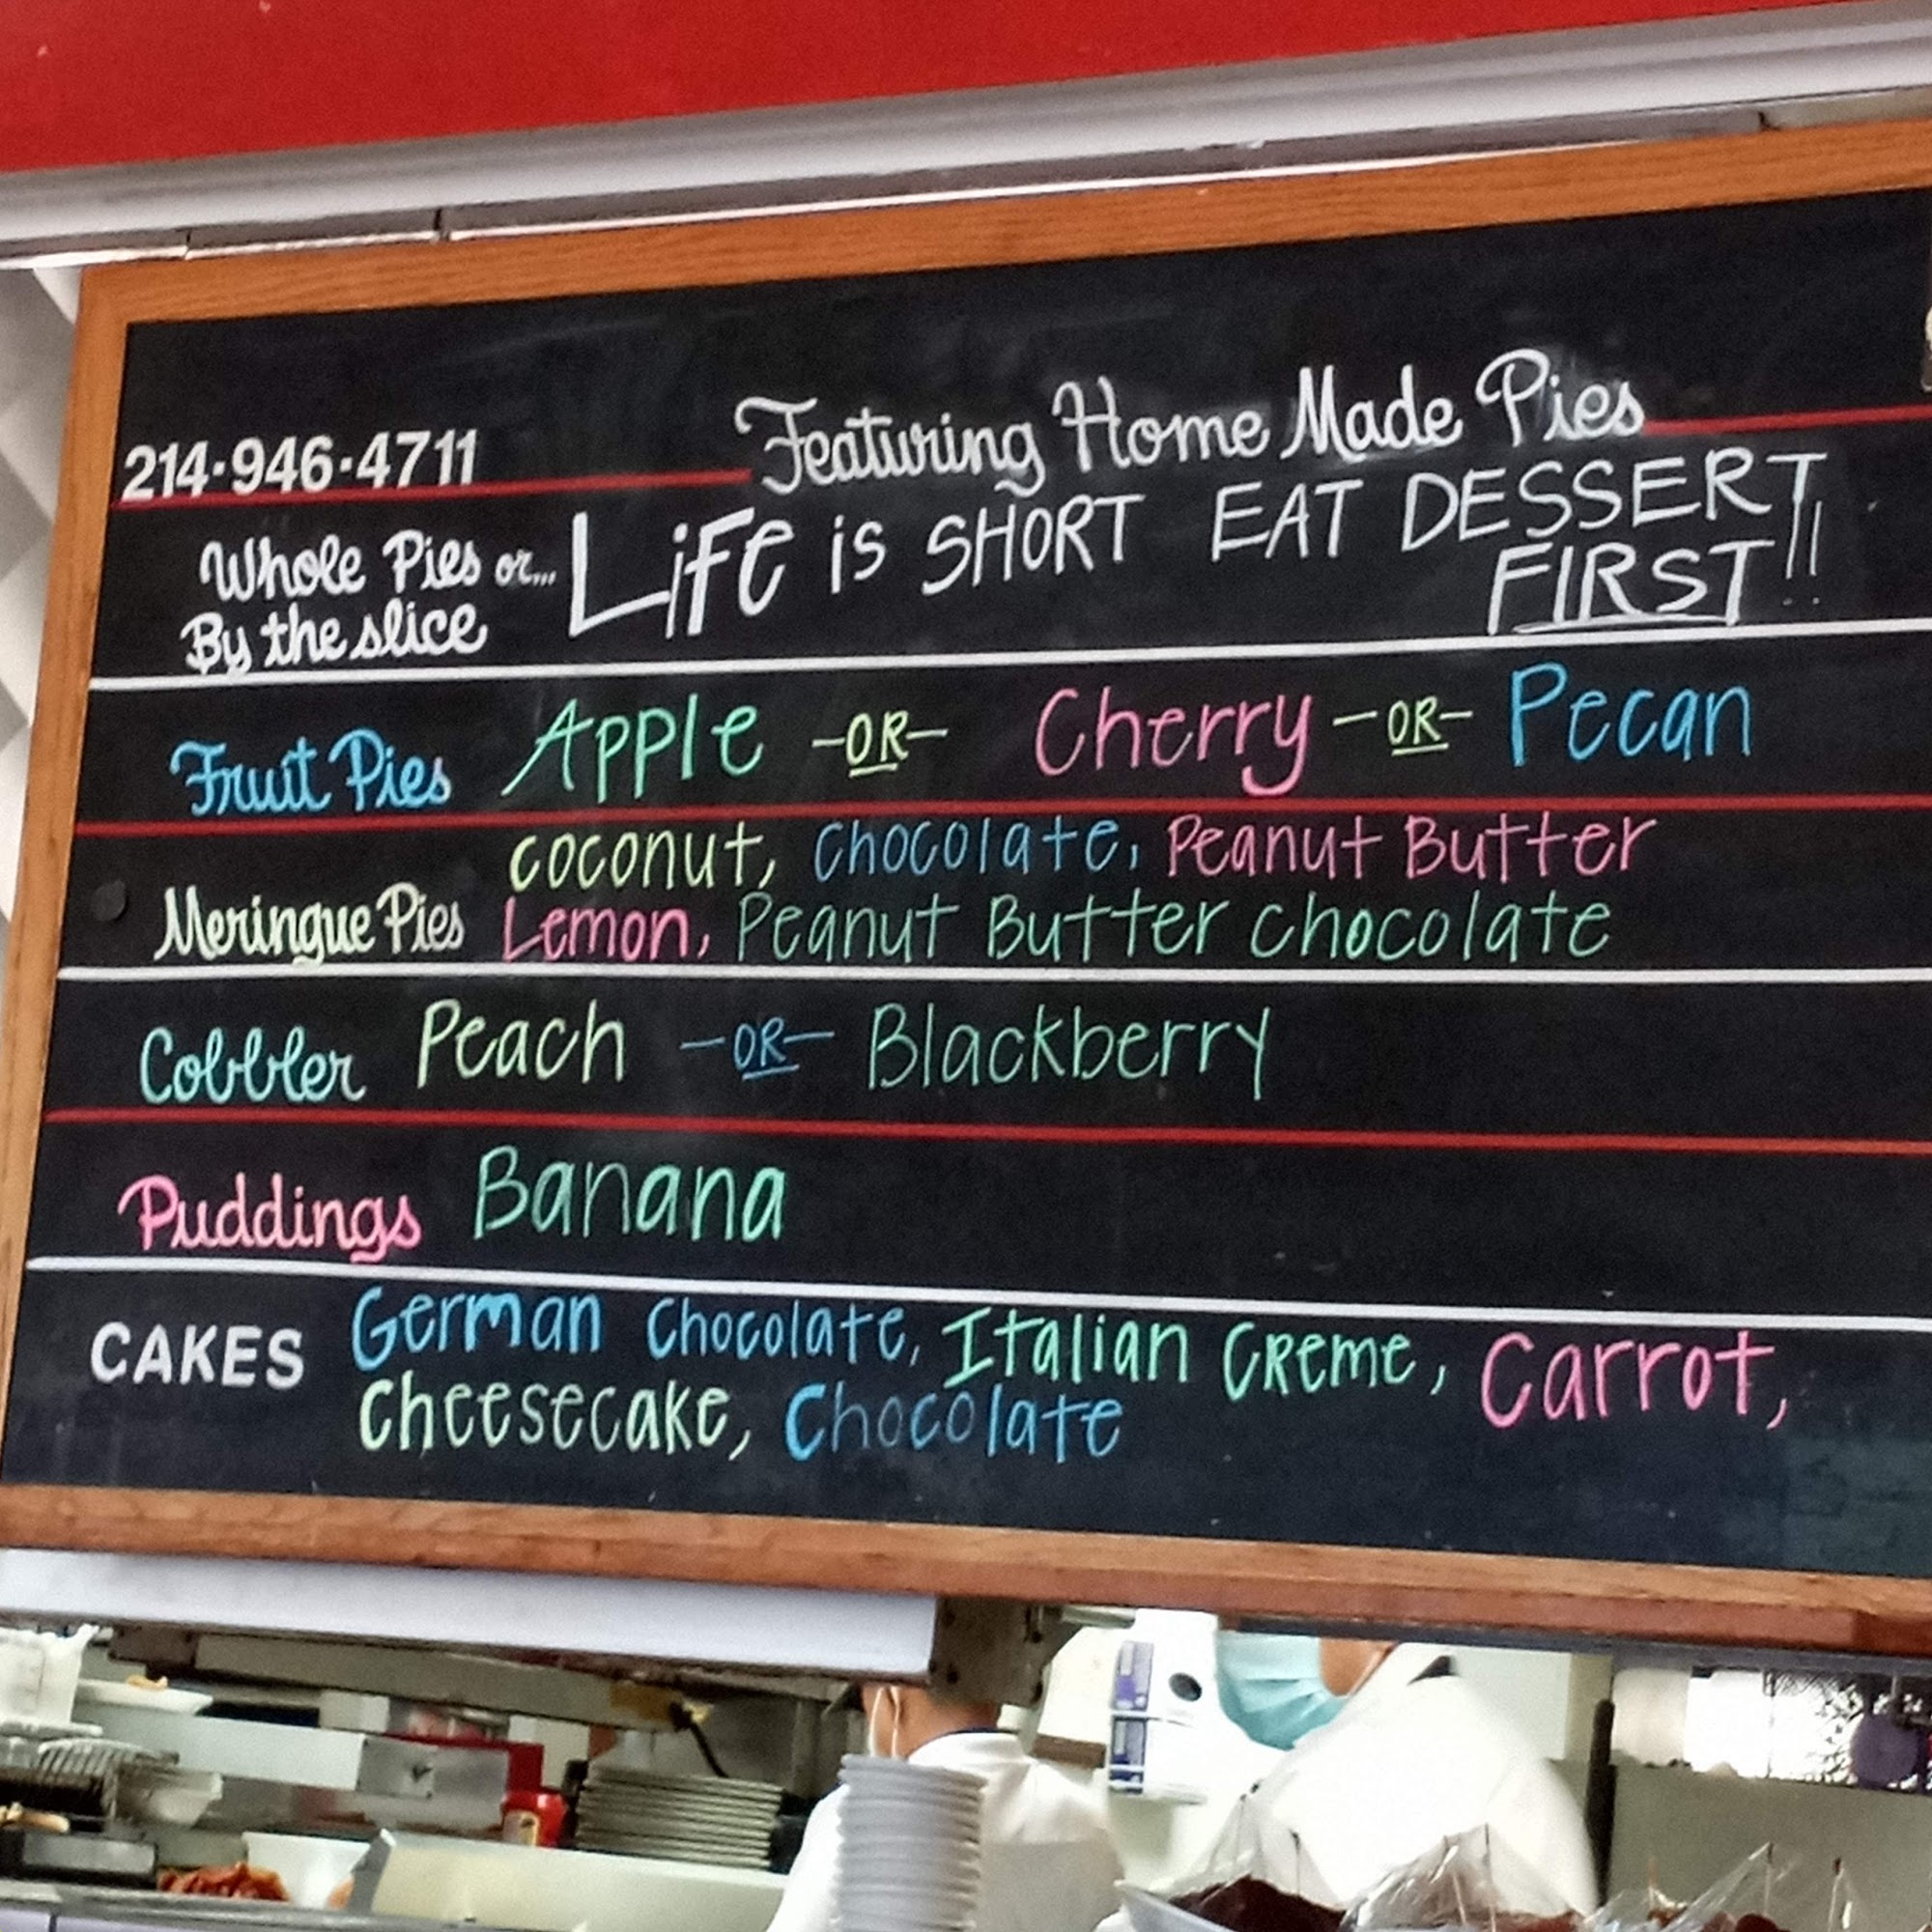 214-946-4711
Featuring Home Made Pies
Whole Pies or...
By the slice
LiFe is SHORT EAT DESSERT
FIRST!!
Fruit Pies Apple -OR- Cherry -OR- Pecan
Meringue Pies
coconut, chocolate, Peanut Butter
Lemon, Peanut Butter chocolate
Cobbler Peach -OR- Blackberry
Puddings Banana
CAKES
German chocolate, Italian CReme, Carrot,
cheesecake, Chocolate